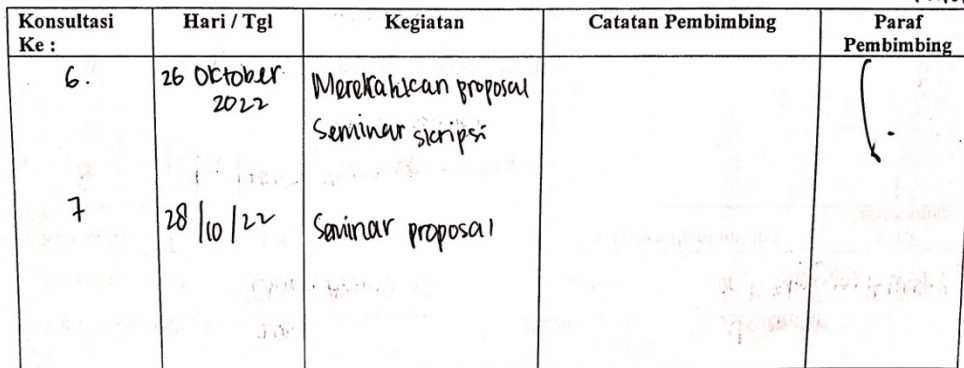 Konsultasi Ke : Hari / Tgl Kegiatan Catatan Pembimbing Paraf Pembimbing
6. 26 Oktober Merekahkan proposal
2022 Seminar skripsi
7 28/10/22 Seminar proposal